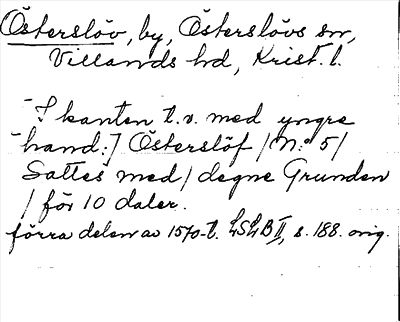 Österslöv, by, Österslövs sn,
Villands hd, Krist. l.
[I kanten t.v. med yngre
hand:] Österslöf / N:o 5 /
Sattes med / degne Grunden
/ för 10 daler.
förra delen av 1570-t. LSLB II, s. 188. orig.